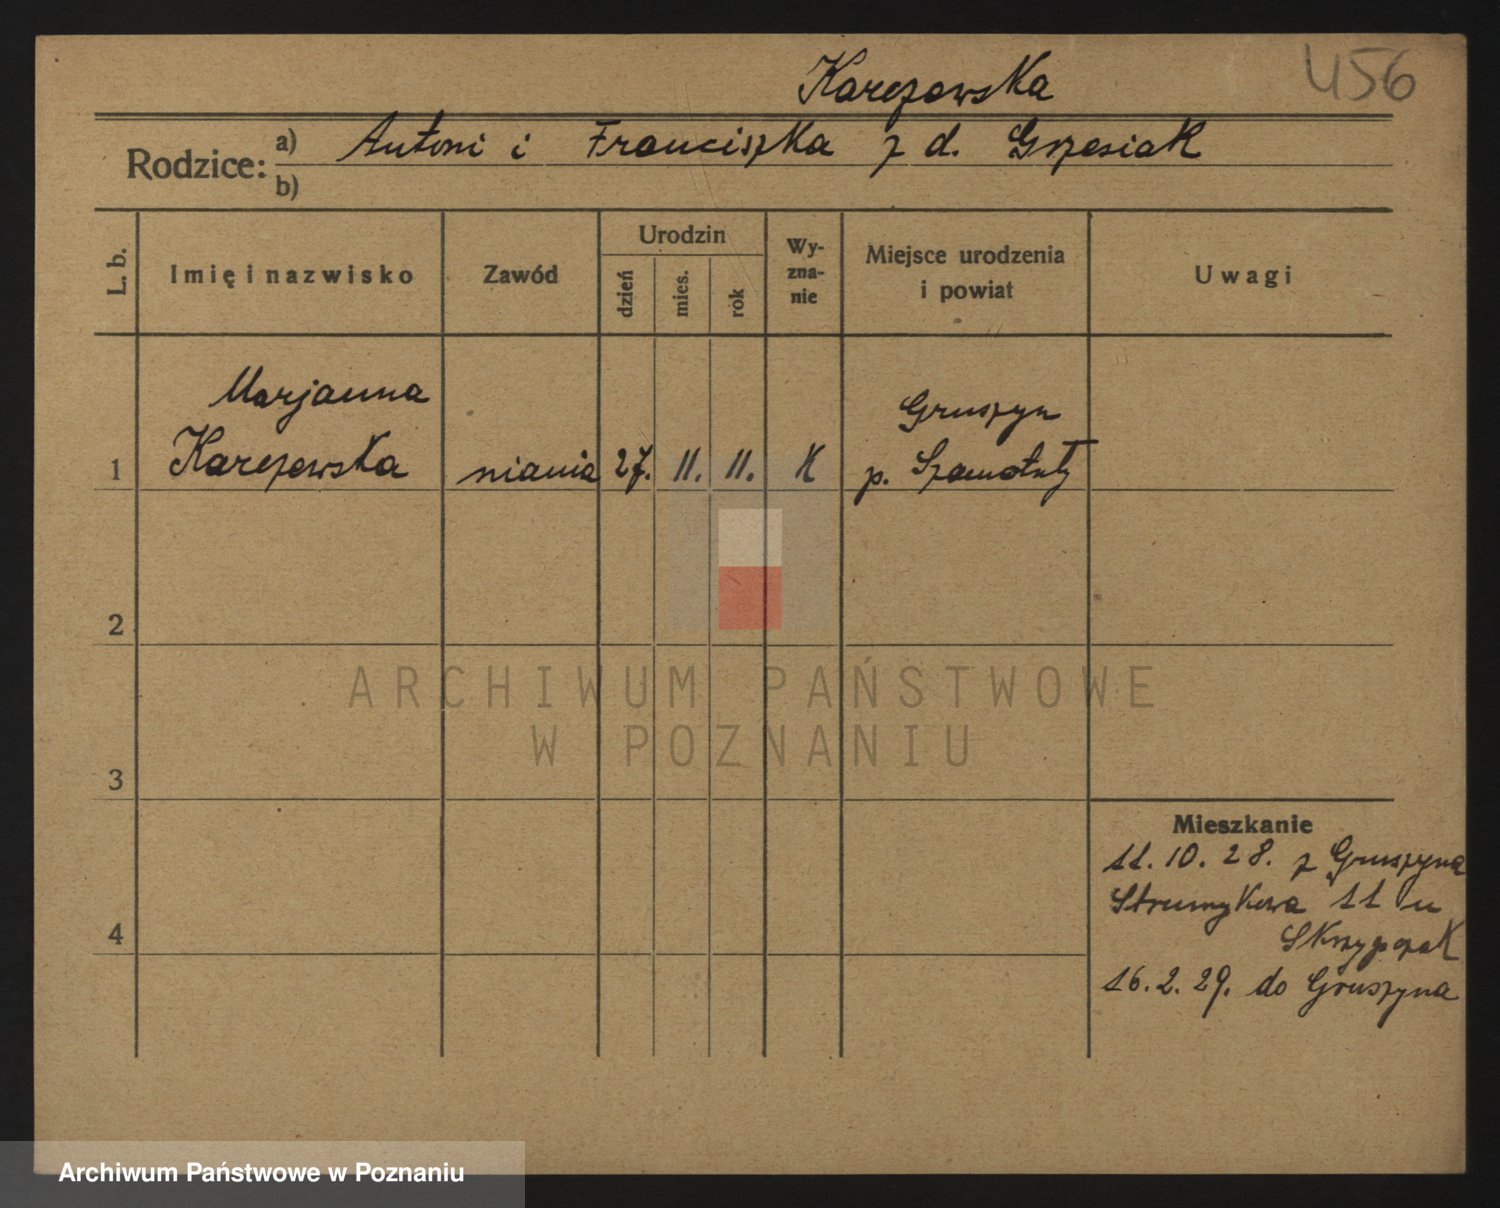 Karczewska
456
Rodzice: a) Antoni i Franciszka z d. Grzesiak
b)
L. b.
Imię i nazwisko
Zawód
Urodzin
dzień
mies.
rok
Wy-
zna-
nie
Miejsce urodzenia
i powiat
Uwagi
Marjanna
1 Karczewska niania 27. 11. 11. K Gruszyn
p. Szamotuły
2
3
4
Mieszkanie
11. 10. 28. z Gruszyna
Strumykowa 11 u
Skrzypczak
16. 2. 29. do Gruszyna
ARCHIWUM PAŃSTWOWE
W POZNANIU
Archiwum Państwowe w Poznaniu